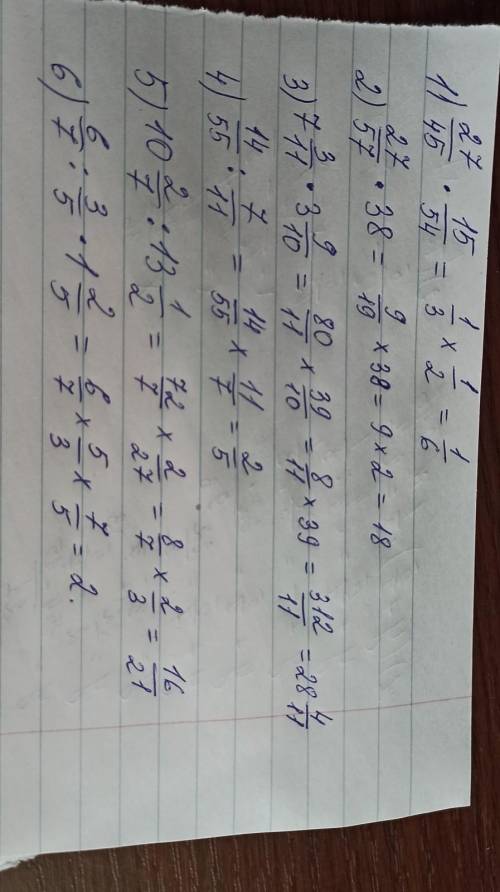 1) 27/45 · 15/54 = 1/3 × 1/2 = 1/6
2) 27/57 · 38 = 9/19 × 38 = 9 × 2 = 18
3) 7 3/11 · 3 9/10 = 80/11 × 39/10 = 8/11 × 39 = 312/11 = 28 4/11
4) 14/55 : 7/11 = 14/55 × 11/7 = 2/5
5) 10 2/7 : 13 1/2 = 72/7 × 2/27 = 8/7 × 2/3 = 16/21
6) 6/7 : 3/5 · 1 2/5 = 6/7 × 5/3 × 7/5 = 2.